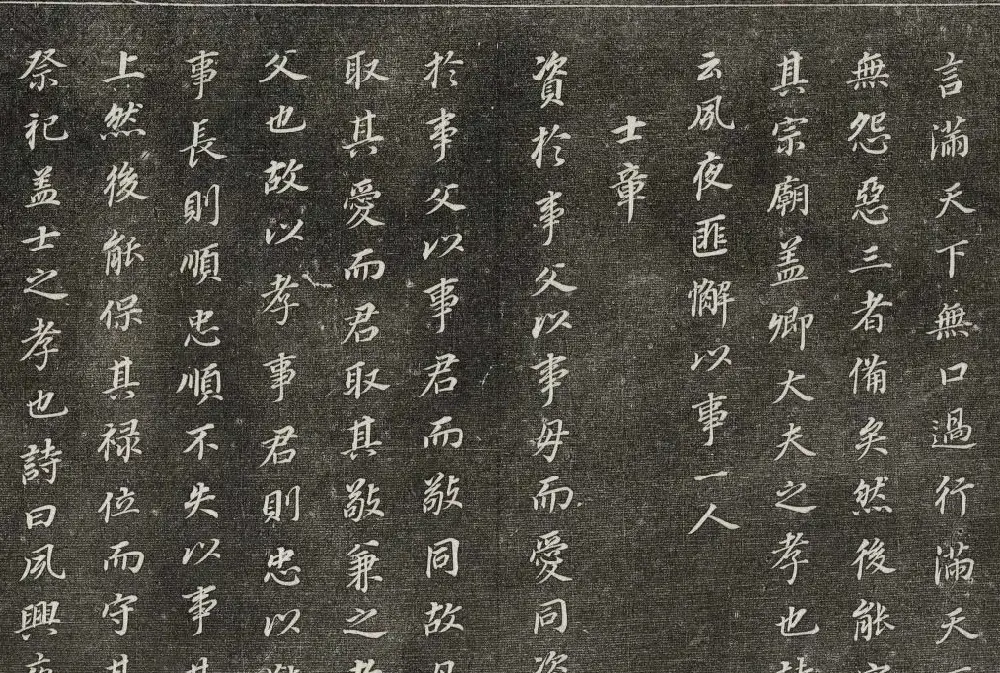 言滿天下無口過行滿天
無怨惡三者備矣然後能
其宗廟盖卿大夫之孝也
云夙夜匪懈以事一人
士章
資於事父以事母而愛同
於事父以事君而敬同故
取其愛而君取其敬兼之
父也故以孝事君則忠以
事長則順忠順不失以事
上然後能保其禄位而守
祭祀盖士之孝也詩曰夙興